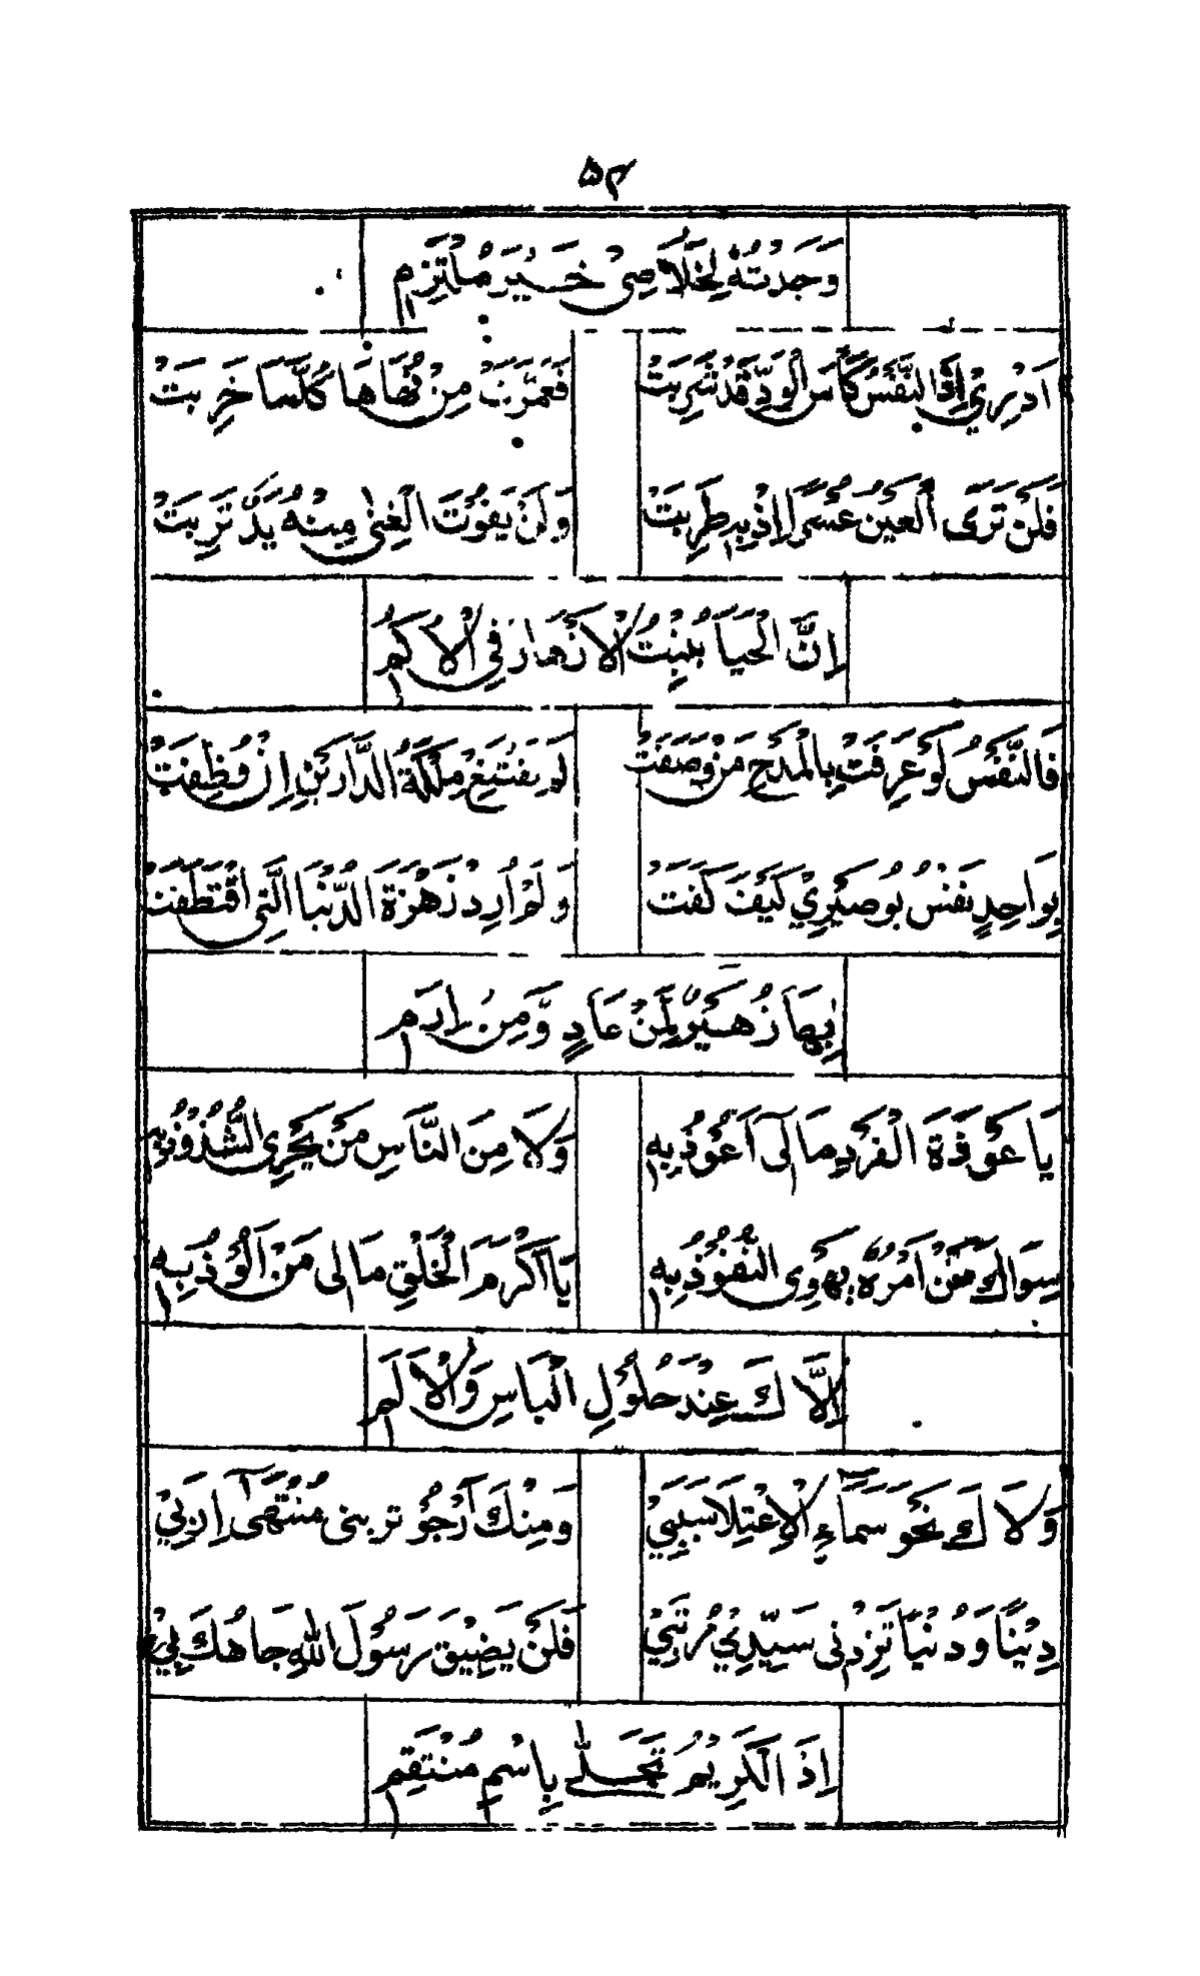 ۵۴
وَجَدْتُهٗ لِخَلَاصِىْ خَيْرَ مُلْتَزِمٖ
اَدْرِىْ اِذَا النَّفْسُ كَأْسَ الْوُدِّ قَدْ شَرِبَتْ فَعَمَّرَتْ مِنْ نُهَاهَا كُلَّمَا خَرِبَتْ
فَلَنْ تَرَى الْعَيْنُ عُسْرًا اِذْ بِهٖ طَرِبَتْ وَلَنْ يَفُوْتَ الْغِنٰى مِنْهُ يَدًا تَرِبَتْ
اِنَّ الْحَيَا يُنْبِتُ الْاَزْهَارَ فِى الْاُكَمٖ
فَالنَّفْسُ لَوْ عَرَفَتْ بِالْمَدْحِ مَنْ وَصَفَتْ لَمْ تَبْتَغِ مِلْكَةَ الدَّارَيْنِ اِنْ وُظِفَتْ
بِوَاحِدٍ نَفْسُ بُوصِيْرِيْ كَيْفَ كَفَتْ وَلَمْ اُرِدْ زَهْرَةَ الدُّنْيَا الَّتِى اقْتَطَفَتْ
بِهَا زُهَيْرٌ لِمَنْ عَادٍ وَّمِنْ اِرَمٖ
يَا عَوْذَةَ الْفَرْدِ مَا لِىٓ اَعُوْذُ بِهٖ وَلَا مِنَ النَّاسِ مَنْ يَجْرِى الشُّذُوْذُ بِهٖ
سِوَاكَ مَنْ اَمْرُهٗ يَهْوِى النُّفُوْذُ بِهٖ يَا اَكْرَمَ الْخَلْقِ مَا لِى مَنْ اَلُوْذُ بِهٖ
اِلَّا كَ عِنْدَ حُلُوْلِ الْبَاسِ وَالْاَلَمٖ
وَلَاكَ نَحْوَ سَمَآءِ الْاِعْتِلَا سَبَبِيْ وَمِنْكَ اَرْجُوْ تربنى مُنْتَهٰٓى اِرَبِيْ
دِيْنًا وَدُنْيًا تَزِدْنِى سَيِّدِيْ رُتَبِيْ فَلَنْ يَضِيْقَ رَسُوْلَ اللهِ جَاهُكَ بِيْ
اِذَ الْكَرِيْمُ تَحَلّٰى بِاسْمِ مُنْتَقِمٖ